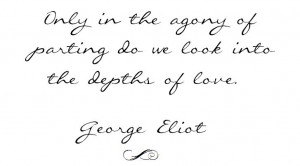 Only in the agony of
parting do we look into
the depths of love.
George Eliot